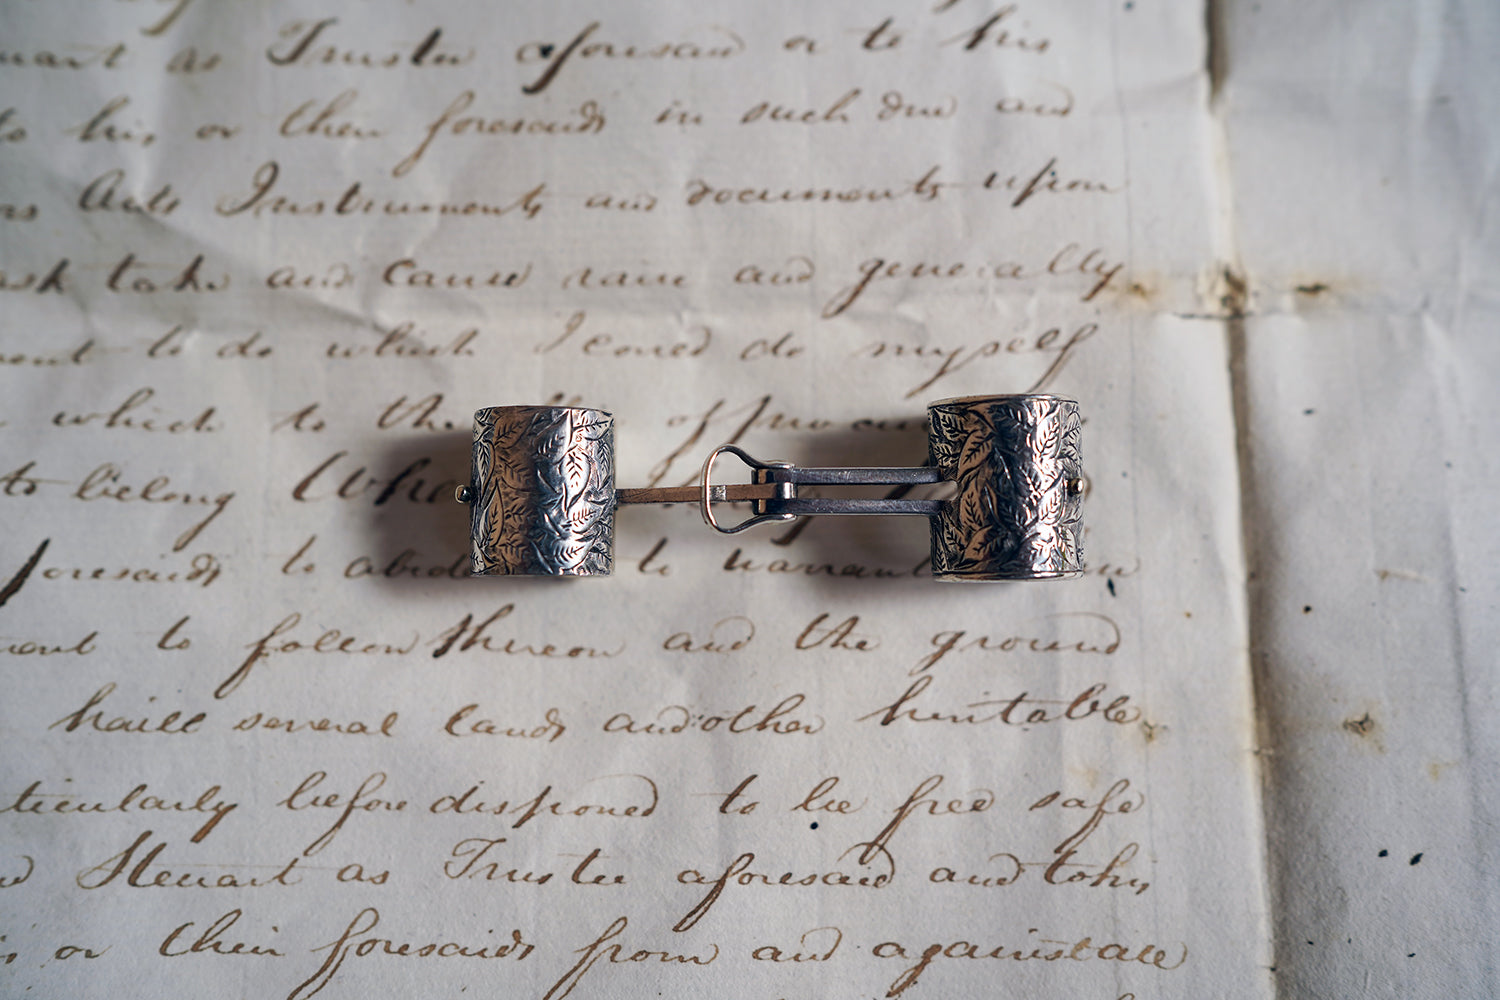 as Trustee aforesaid or to his
to his or their foresaids in such due and
Acts Instruments and documents upon
take and cause and generally
to do which I could do myself
which to the of
to belong
foresaids to to
to follow thereon and the ground
haill several lands and other heritable
before disponed to be free safe
Steuart as Trustee aforesaid and to his
or their foresaids from and against all